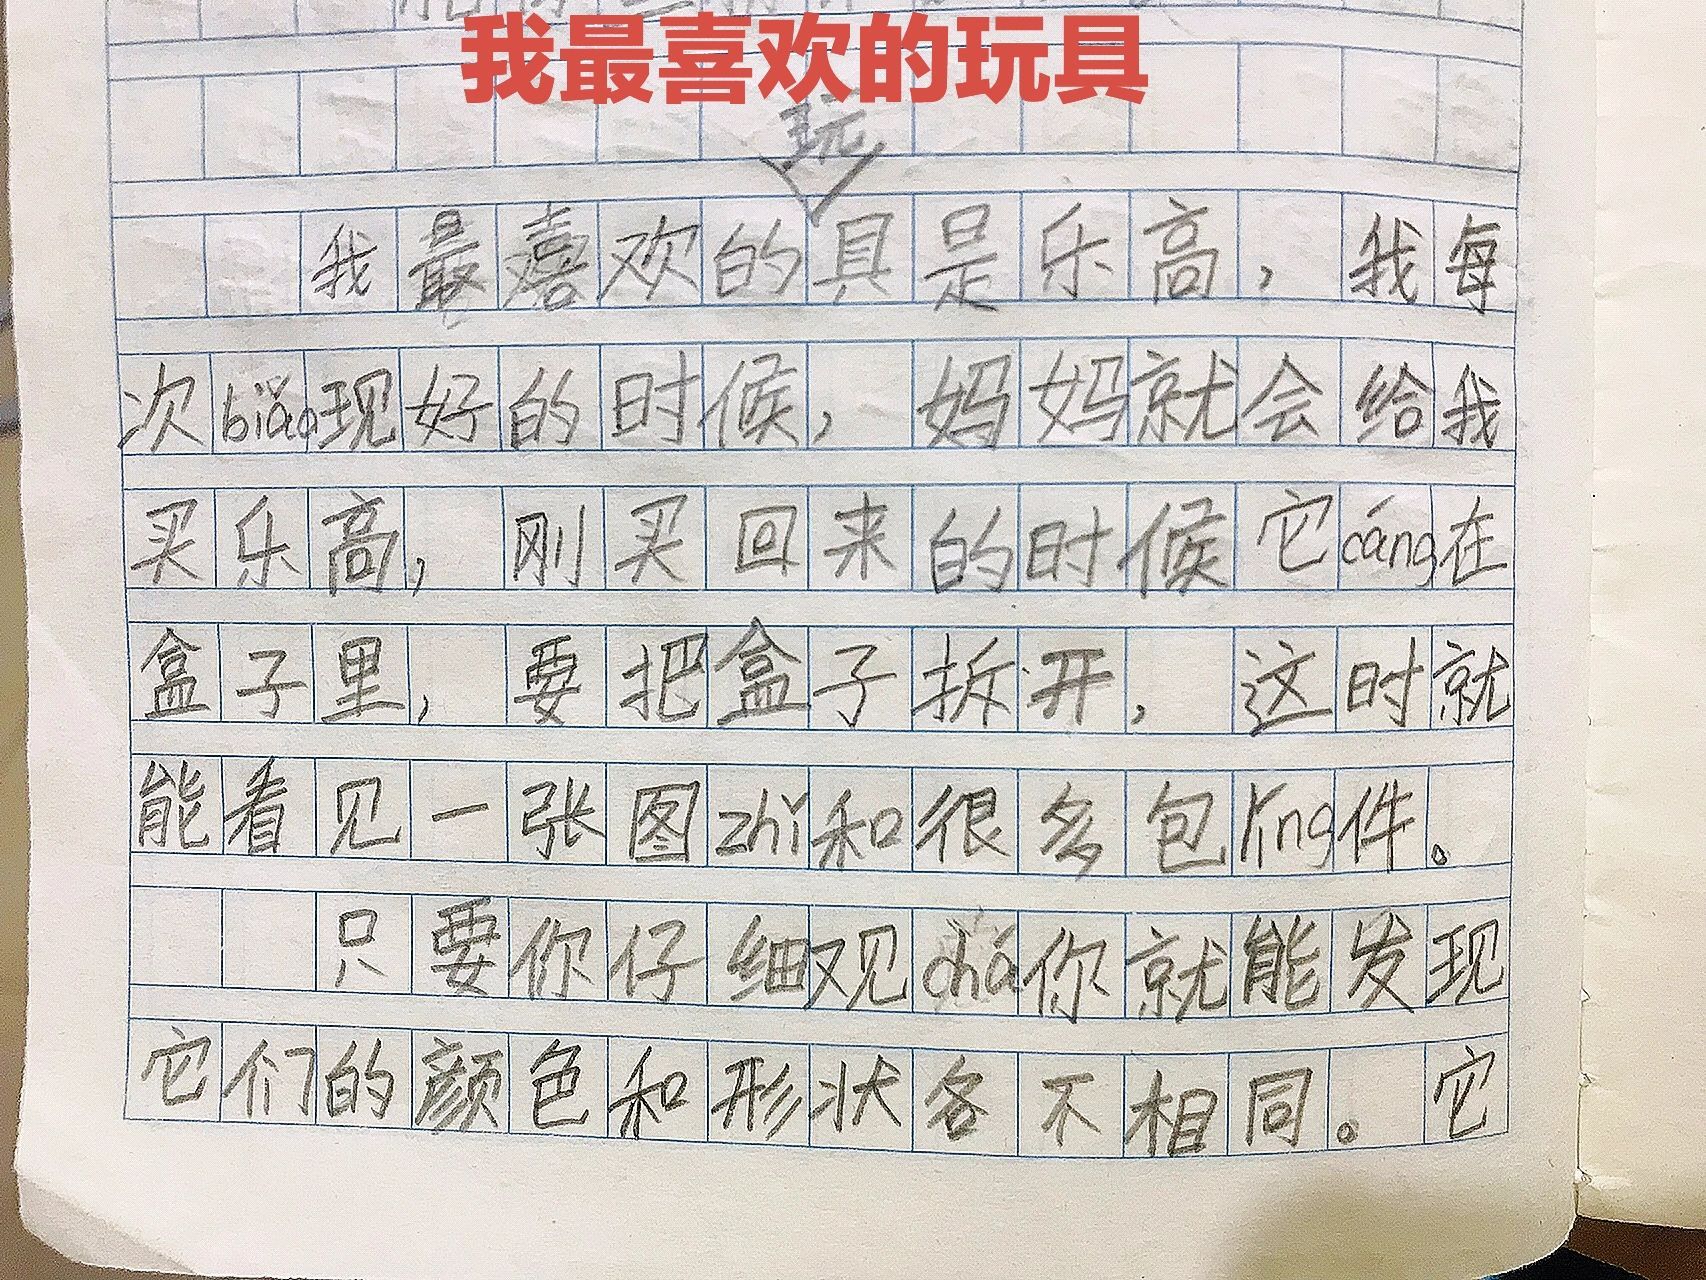 我最喜欢的玩具
玩
我最喜欢的具是乐高，我每
次biǎo现好的时候，妈妈就会给我
买乐高，刚买回来的时候它cáng在
盒子里，要把盒子拆开，这时就
能看见一张图zhǐ和很多包líng件。
只要你仔细观chá你就能发现
它们的颜色和形状各不相同。它